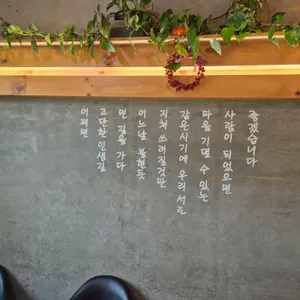 어쩌면
고단한 인생길
먼 길을 가다
어느날 불현듯
지쳐 쓰러질것만
같은시기에 우리 서로
마음 기댈 수 있는
사람이 되었으면
좋겠습니다